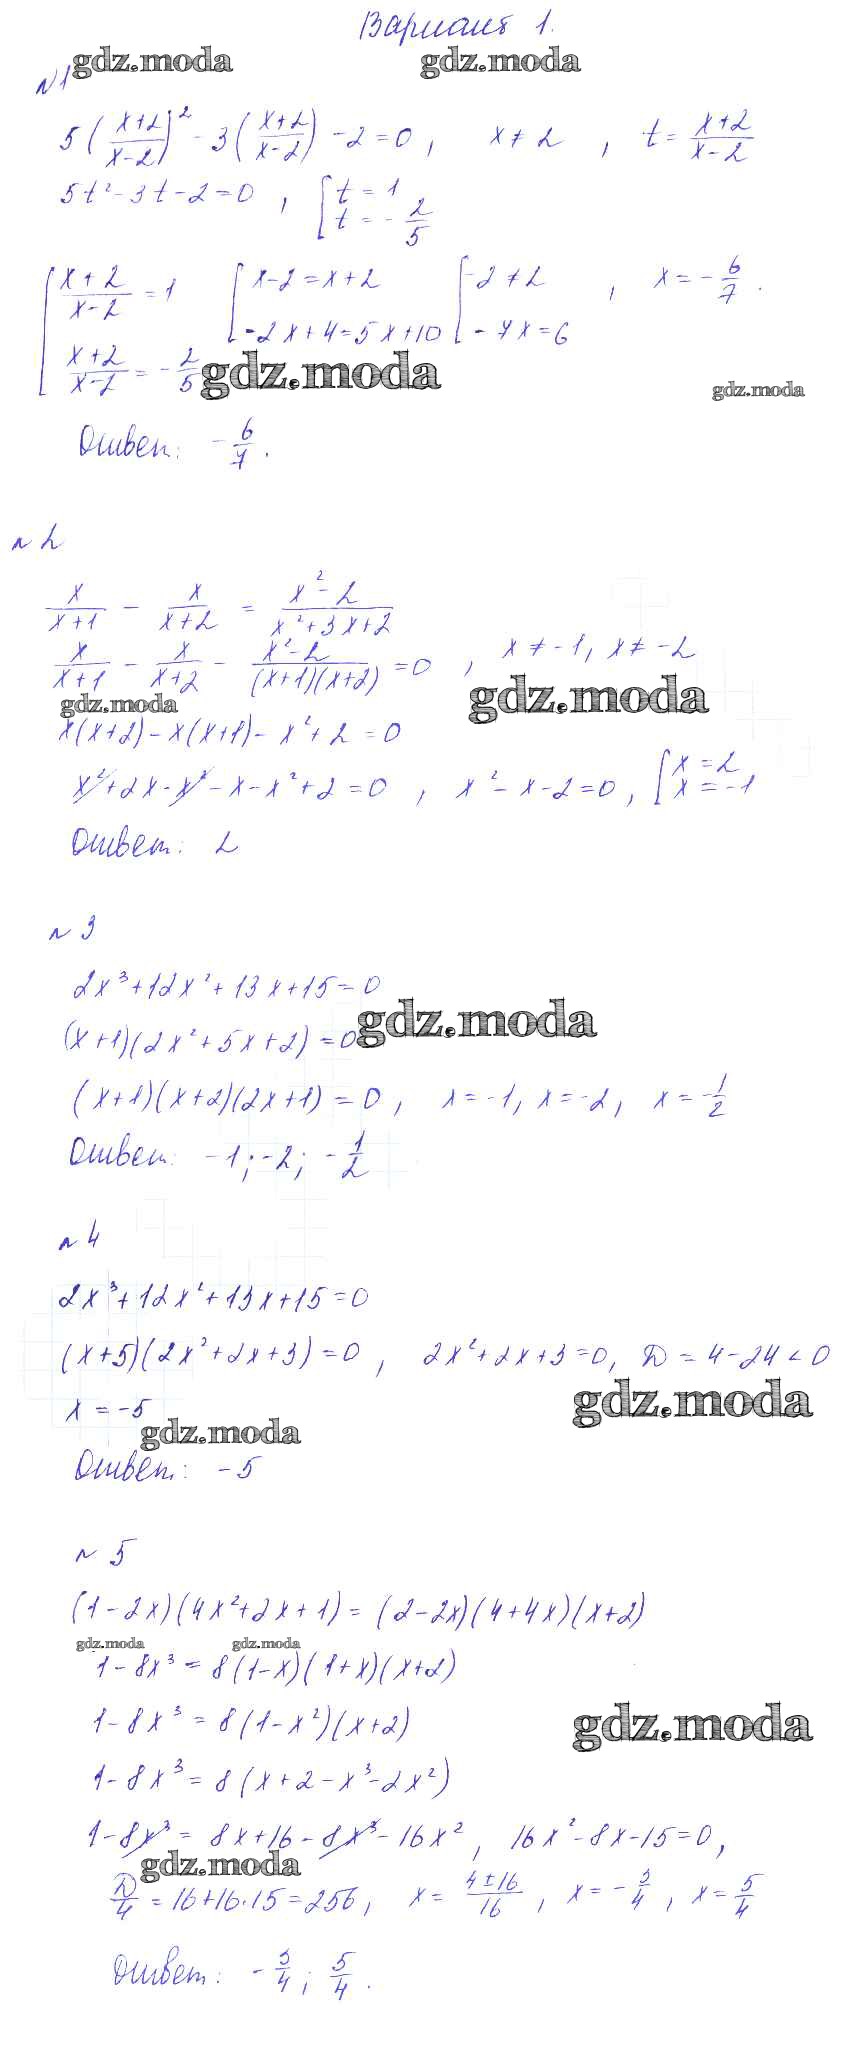 Вариант 1.
gdz.moda gdz.moda
№1
5((x+2)/(x-2))² - 3((x+2)/(x-2)) - 2 = 0, x ≠ 2, t = (x+2)/(x-2)
5t² - 3t - 2 = 0, [ t = 1
t = -2/5
[ (x+2)/(x-2) = 1 [ x-2 = x+2 [ -2 ≠ 2, x = -6/7.
(x+2)/(x-2) = -2/5 -2x+4 = 5x+10 -7x = 6
gdz.moda gdz.moda
Ответ: -6/7.
№2
x/(x+1) - x/(x+2) = (x²-2)/(x²+3x+2)
x/(x+1) - x/(x+2) - (x²-2)/((x+1)(x+2)) = 0, x ≠ -1, x ≠ -2
gdz.moda gdz.moda
x(x+2) - x(x+1) - x² + 2 = 0
x² + 2x - x² - x - x² + 2 = 0, x² - x - 2 = 0, [ x = 2
x = -1
Ответ: 2
№3
2x³ + 12x² + 13x + 15 = 0
gdz.moda
(x+1)(2x² + 5x + 2) = 0
(x+1)(x+2)(2x+1) = 0, x = -1, x = -2, x = -1/2
Ответ: -1; -2; -1/2
№4
2x³ + 12x² + 13x + 15 = 0
(x+5)(2x² + 2x + 3) = 0, 2x² + 2x + 3 = 0, D = 4 - 24 < 0
gdz.moda
x = -5
gdz.moda
Ответ: -5
№5
(1-2x)(4x²+2x+1) = (2-2x)(4+4x)(x+2)
gdz.moda gdz.moda
1 - 8x³ = 8(1-x)(1+x)(x+2)
1 - 8x³ = 8(1-x²)(x+2)
gdz.moda
1 - 8x³ = 8(x + 2 - x³ - 2x²)
1 - 8x³ = 8x + 16 - 8x³ - 16x², 16x² - 8x - 15 = 0,
gdz.moda
D/4 = 16 + 16·15 = 256, x = (4±16)/16, x = -3/4, x = 5/4
Ответ: -3/4; 5/4.